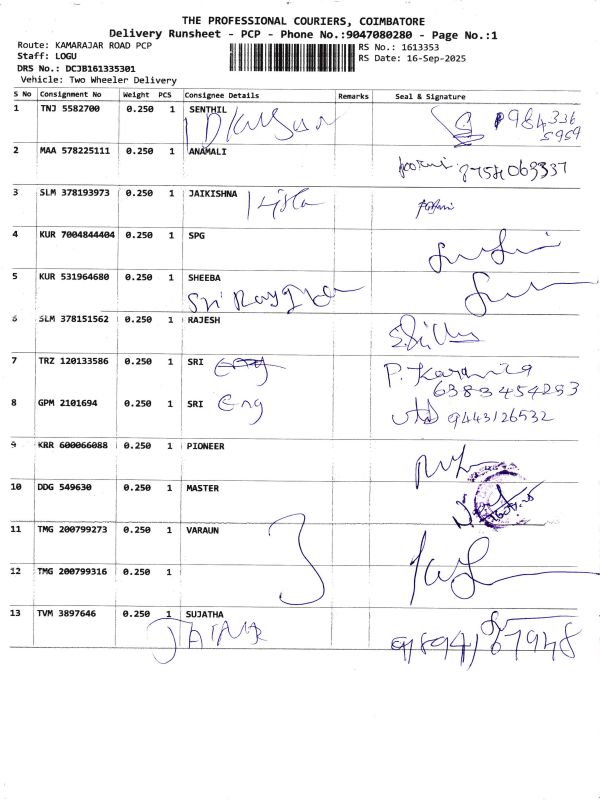 THE PROFESSIONAL COURIERS, COIMBATORE
Delivery Runsheet - PCP - Phone No.:9047080280 - Page No.:1
Route: KAMARAJAR ROAD PCP
RS No.: 1613353
Staff: LOGU
RS Date: 16-Sep-2025
DRS No.: DCJB161335301
Vehicle: Two Wheeler Delivery
S No Consignment No Weight PCS Consignee Details Remarks Seal & Signature
1 TNJ 5582700 0.250 1 SENTHIL
2 MAA 578225111 0.250 1 ANAMALI
3 SLM 378193973 0.250 1 JAIKISHNA
4 KUR 7004844404 0.250 1 SPG
5 KUR 531964680 0.250 1 SHEEBA
6 SLM 378151562 0.250 1 RAJESH
7 TRZ 120133586 0.250 1 SRI Eng
6383454253
8 GPM 2101694 0.250 1 SRI Eng 9443126532
9 KRR 600066088 0.250 1 PIONEER
10 DDG 549630 0.250 1 MASTER
11 TMG 200799273 0.250 1 VARAUN
12 TMG 200799316 0.250 1
13 TVM 3897646 0.250 1 SUJATHA